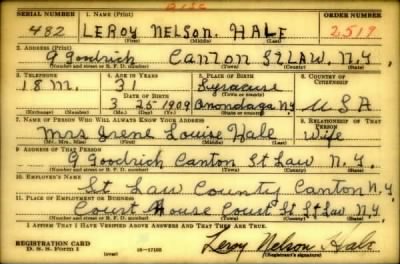 SERIAL NUMBER 1. NAME (Print) ORDER NUMBER
482 LEROY NELSON. HALE 2519
2. ADDRESS (Print)
9 Goodrich Canton St LAW. N.Y.
(Number and street or R. F. D. number) (Town) (County) (State)
3. TELEPHONE 4. AGE IN YEARS 5. PLACE OF BIRTH 6. COUNTRY OF CITIZENSHIP
18M. 31 Syracuse
DATE OF BIRTH
3 25 1909 Onondaga N.Y U.S.A
(Exchange) (Number) (Mo.) (Day) (Yr.) (State or country)
7. NAME OF PERSON WHO WILL ALWAYS KNOW YOUR ADDRESS 8. RELATIONSHIP OF THAT PERSON
Mrs Irene Louise Hale Wife
(Mr., Mrs., Miss) (First) (Middle) (Last)
9. ADDRESS OF THAT PERSON
9 Goodrich Canton St Law N.Y.
(Number and street or R. F. D. number) (Town) (County) (State)
10. EMPLOYER'S NAME
St Law County Canton N.Y.
11. PLACE OF EMPLOYMENT OR BUSINESS
Court House Court St St Law N.Y.
(Number and street or R. F. D. number) (Town) (County) (State)
I AFFIRM THAT I HAVE VERIFIED ABOVE ANSWERS AND THAT THEY ARE TRUE.
REGISTRATION CARD
D. S. S. Form 1 (over) 16—17105 Leroy Nelson Hale
(Registrant's signature)